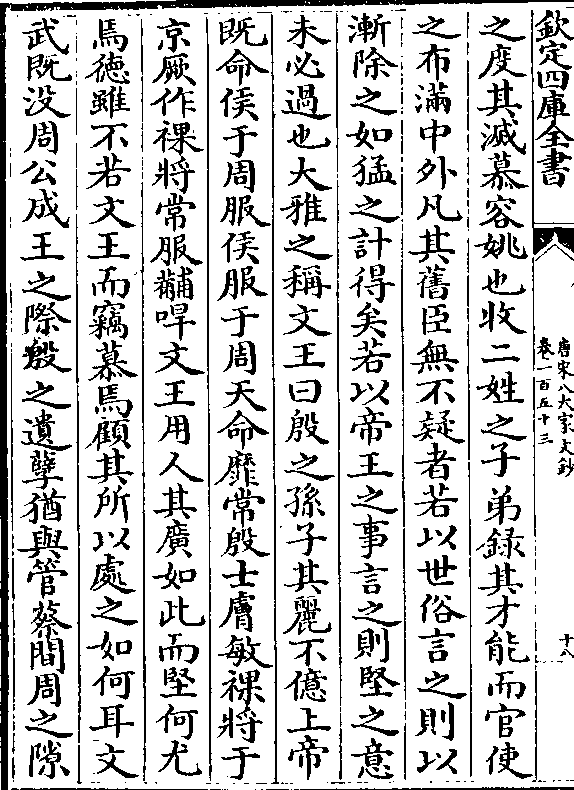 欽定四庫全書
唐宋八大家文鈔
卷一百五十三
十八
之度其滅慕容姚也收二姓之子弟錄其才能而官使
之布滿中外凡其舊臣無不疑者若以世俗言之則以
漸除之如猛之計得矣若以帝王之事言之則堅之意
未必過也大雅之稱文王曰殷之孫子其麗不億上帝
既命侯于周服侯服于周天命靡常殷士膚敏祼將于
京厥作祼將常服黼哻文王用人其廣如此而堅何尤
焉德雖不若文王而竊慕焉顧其所以處之如何耳文
武既没周公成王之際殷之遺孽猶與管蔡間周之隙